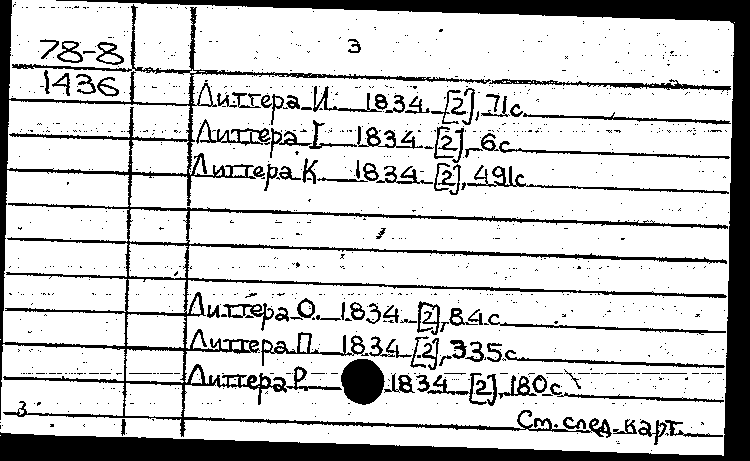 78-8 3
1436
Литтера И. 1834. [2], 71с.
Литтера I 1834 [2], 6с.
Литтера К. 1834. [2], 491с.
Литтера О. 1834. [2], 84с.
Литтера П. 1834 [2], 335с.
Литтера Р. 1834 [2], 180с.
См. след. карт.
3